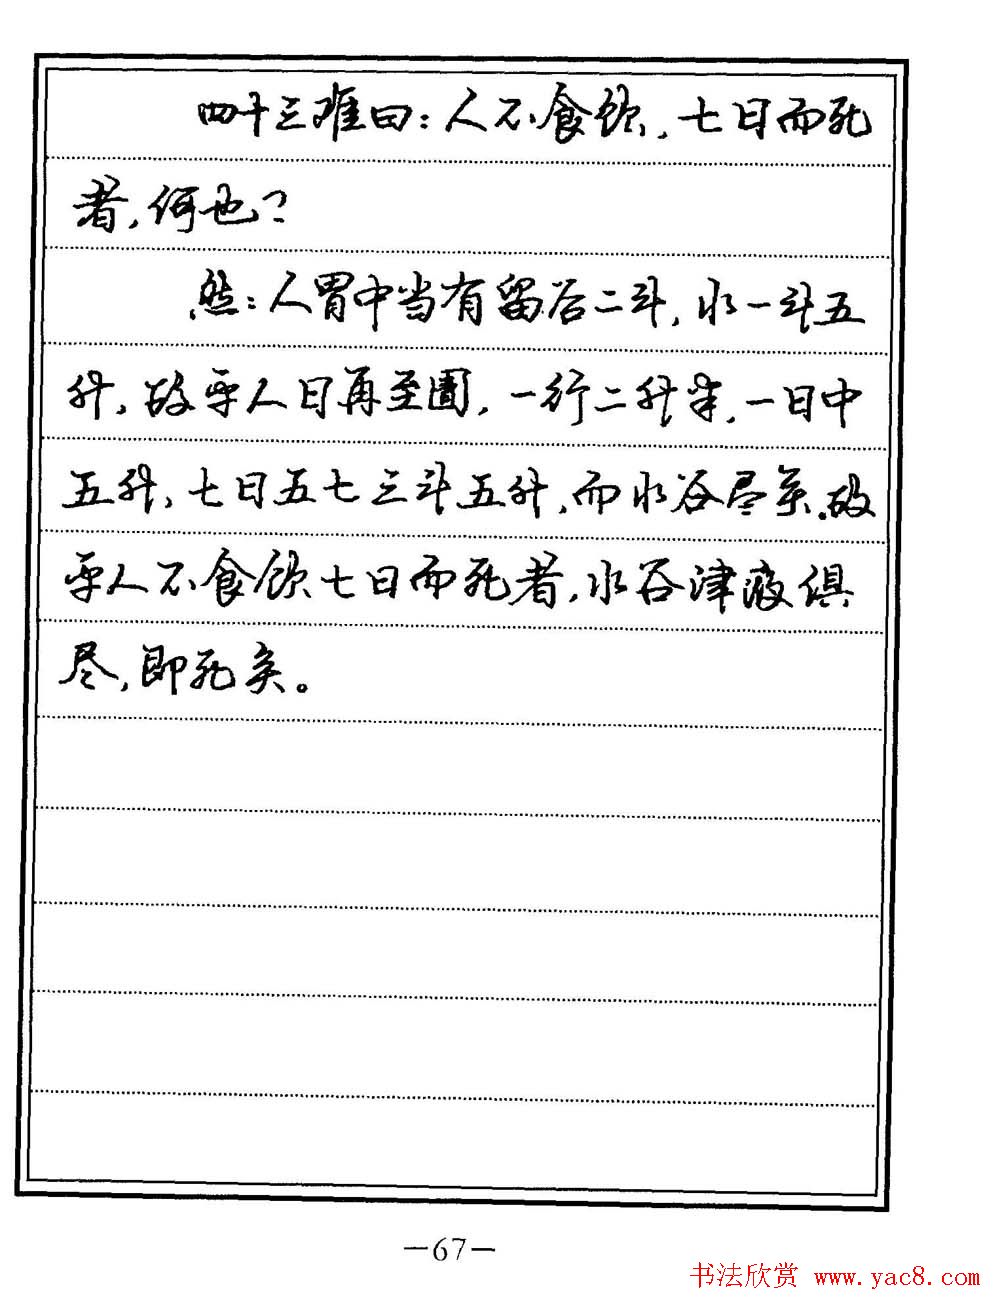 四十三难曰：人不食饮，七日而死
者，何也？
然：人胃中当有留谷二斗，水一斗五
升，故平人日再至圊，一行二升半，一日中
五升，七日五七三斗五升，而水谷尽矣。故
平人不食饮七日而死者，水谷津液俱
尽，即死矣。
—67—
书法欣赏 www.yac8.com